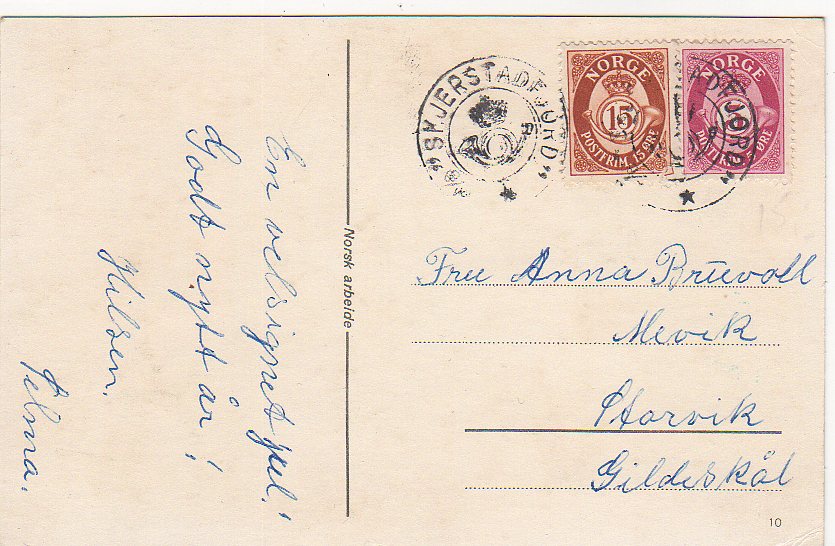 En velsignet jul!
Godt nytt år!
Hilsen.
Selma.
Norsk arbeide
"SKJERSTADFJORD"
NORGE
15
POSTFRIM. 15 ØRE
NORGE
ØRE
JORD"
Fru Anna Bruvoll
Mevik
Storvik
Gildeskål
10